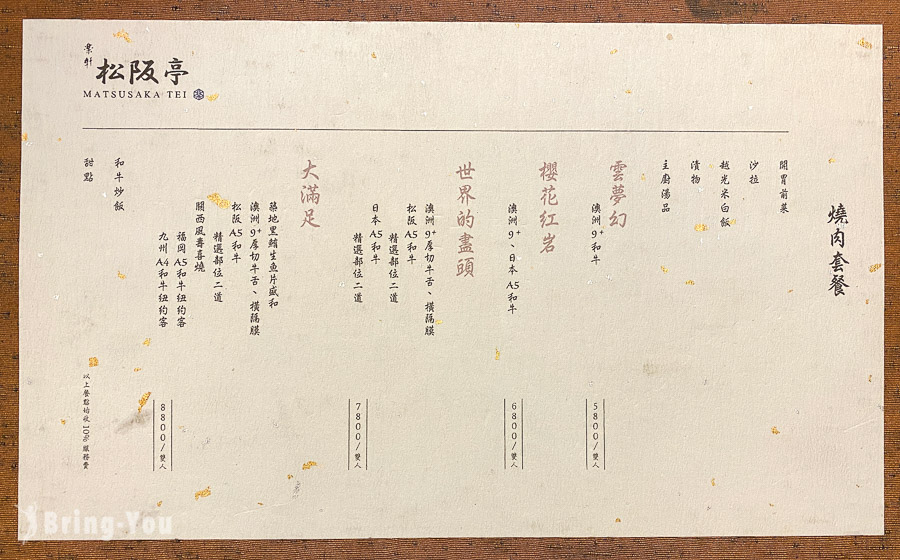 樂軒
松阪亭
MATSUSAKA TEI
燒肉套餐
開胃前菜
沙拉
越光米白飯
漬物
主廚湯品
雲夢幻
澳洲9⁺和牛
5800/雙人
櫻花紅岩
澳洲9⁺、日本A5和牛
6800/雙人
世界的盡頭
澳洲9⁺厚切牛舌、橫隔膜
松阪A5和牛
精選部位二道
日本A5和牛
精選部位二道
7800/雙人
大滿足
築地黑鮪生魚片盛和
澳洲9⁺厚切牛舌、橫隔膜
松阪A5和牛
精選部位二道
關西風壽喜燒
福岡A5和牛紐約客
九州A4和牛紐約客
8800/雙人
和牛炒飯
甜點
以上餐點均收10%服務費
Bring-You